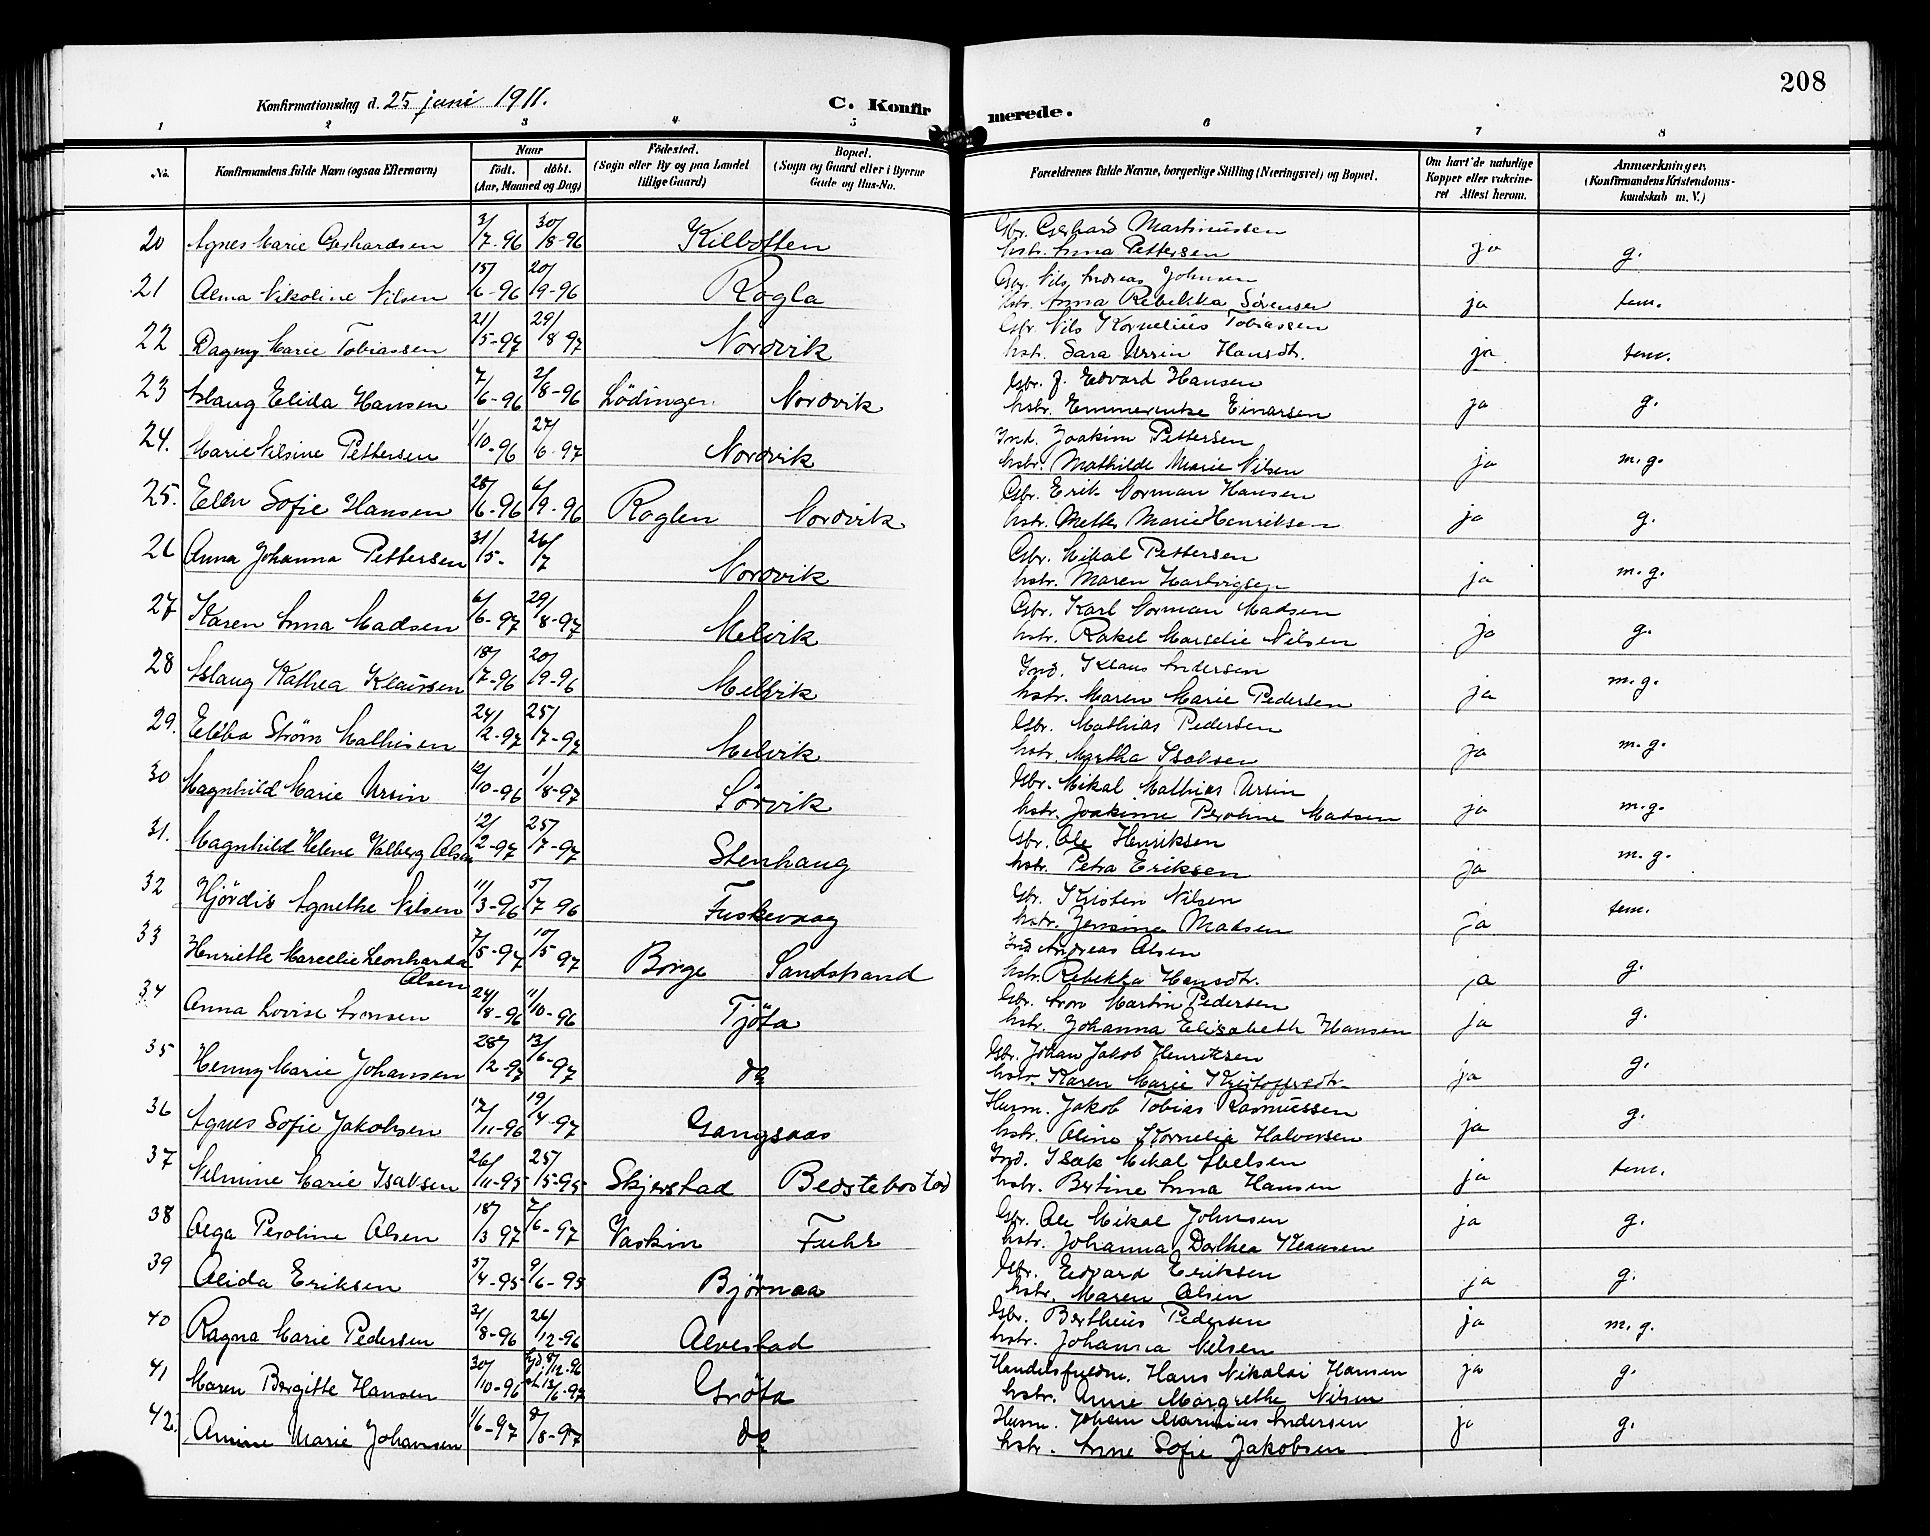 208
Konfirmationsdag d. 25 juni 1911.
C. Konfirmerede.
1 2 3 4 5 6 7 8
No. Konfirmandens fulde Navn (ogsaa Efternavn) Naar födt. döbt. (Aar, Maaned og Dag) Födested. (Sogn eller By og paa Landet tillige Gaard) Bopæl. (Sogn og Gaard eller i Byerne Gade og Hus-No. Forældrenes fulde Navne, borgerlige Stilling (Næringsvei) og Bopæl. Om havt de naturlige Kopper eller vakcineret Attest herom. Anmærkninger. (Konfirmandens Kristendomskundskab m. V.)
20 Agnes Marie Gerhardsen 3/7-96 30/8-96 Kilbotten Gbr. Gerhard Martinussen
hstr. Anna Pettersen ja g.
21 Alma Nikoline Nilsen 15/6-96 20/9-96 Rogla Gbr. Nils Andreas Johnsen
hstr. Anna Rebekka Sörensen ja tem.
22 Dagny Marie Tobiassen 21/5-97 29/8 97 Nordvik Gbr. Nils Kornelius Tobiassen
hstr. Sara Ursin Hansdt. ja tem.
23 Aslaug Elida Hansen 7/6-96 2/8-96 Lödingen Nordvik Gbr. J. Edvard Hansen
hstr. Emmerentse Einarsen ja g.
24. Marie Nilsine Pettersen 1/10-96 27/6-97 Nordvik Ind. Joakim Pettersen
hstr. Mathilde Marie Nilsen ja m.g.
25. Ellen Sofie Hansen 28/6-96 6/9-96 Roglen Nordvik Gbr. Erik Norman Hansen
hstr. Mette Marie Henriksen ja g.
26 Anna Johanna Pettersen 31/5- 26/7 Nordvik Gbr. Mikal Pettersen
hstr. Maren Hartvigsen ja m.g.
27 Karen Anna Madsen 6/6-97 29/8-97 Melvik Gbr. Karl Norman Madsen
hstr. Rakel Marselie Nilsen ja g.
28 Aslaug Kathea Klaussen 18/7-96 20/9-96 Melvik Ind. Klaus Andersen
hstr. Maren Marie Pedersen ja m.g.
29. Ebba Strøm Mathisen 24/2-97 25/7-97 Melvik Gbr. Mathias Pedersen
hstr. Martha Isaksen ja m.g.
30 Magnhild Marie Ursin 12/10-96 1/8-97 Sörvik Gbr. Mikal Mathias Ursin
hstr. Joakime Peroline Madsen ja m.g.
31. Magnhild Helene Valberg Olsen 12/2-97 25/7-97 Stenhaug Gbr. Ole Henriksen
hstr. Petra Eriksen ja m.g.
32 Hjördis Agnethe Nilsen 11/3-96 5/7-96 Fuskevaag Gbr. Kristen Nilsen
hstr. Jensine Madsen ja tem.
33 Henriette Marcelie Leonharda
Olsen 7/5-97 10/5 97 Borge Sandstrand Ind. Andreas Olsen
hstr. Rebekka Hansdtr. ja g.
34 Anna Lovise Aronsen 24/8-96 11/10-96 Tjöta Gbr. Aron Martin Pedersen
hstr. Johanna Elisabeth Hansen ja g.
35 Henny Marie Johansen 28/2-97 13/6-97 do Gbr. Johan Jakob Henriksen
hstr. Karen Marie Kristoffersdtr. ja g.
36 Agnes Sofie Jakobsen 17/11-96 19/4-97 Gangsaas Husm. Jakob Tobias Rasmussen
hstr. Oline Kornelia Halvorsen ja g.
37 Vilmine Marie Isaksen 26/11-95 25/5-95 Skjerstad Bedstebostad Ind. Isak Mikal Abelsen
hstr. Bertine Anna Hansen ja tem.
38 Olga Peroline Olsen 18/3 97 7/6-97 Vaskin Fuhr Gbr. Ole Mikal Johnsen
hstr. Johanna Dorthea Klausen ja g.
39 Alida Eriksen 5/4-95 9/6-95 Björnaa Gbr. Edvard Eriksen
hstr. Maren Olsen ja g.
40 Ragna Marie Pedersen 31/8-96 26/12-96 Alvestad Gbr. Bertheus Pedersen
hstr. Johanna Nilsen ja m.g.
41 Maren Bergitte Hansen 30/10-96 hjd. 8/12-96
13/6-97 Gröta Handelsfuldm. Hans Nikolai Hansen
hstr. Anne Margrethe Nilsen ja g.
42. Amine Marie Johansen 1/6-97 8/8-97 do Husm. Johan Marinius Andersen
hstr. Anne Sofie Jakobsen ja g.